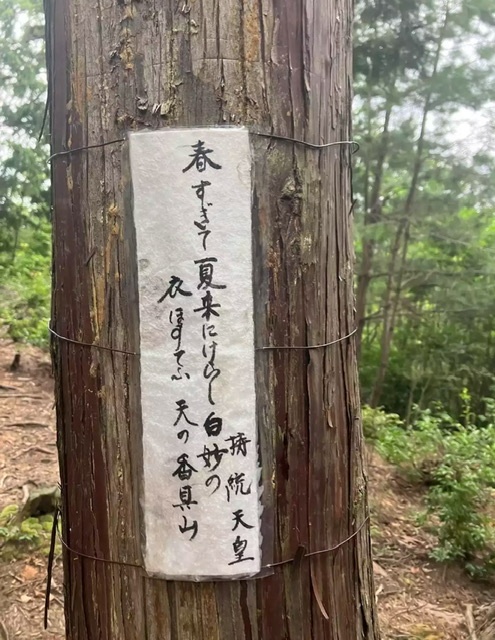 持統天皇
春すぎて 夏来にけらし 白妙の
衣ほすてふ 天の香具山